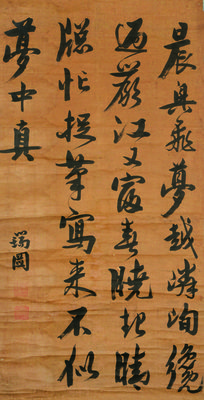 晨興飛夢越嶙峋纔
過嚴江又富春曉起晴
牕忙捉筆寫來不似
夢中真
瑞圖